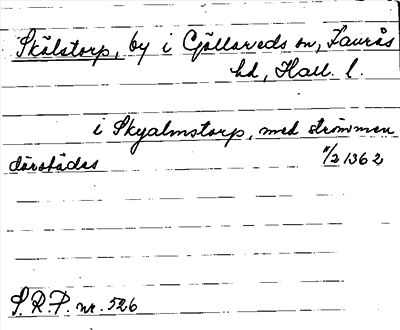 Skälstorp, by i Gällareds sn, Faurås
hd, Hall. l.
i Skyalmstorp, med strömmen
därstädes 11/2 1362
S.R.P. nr. 526